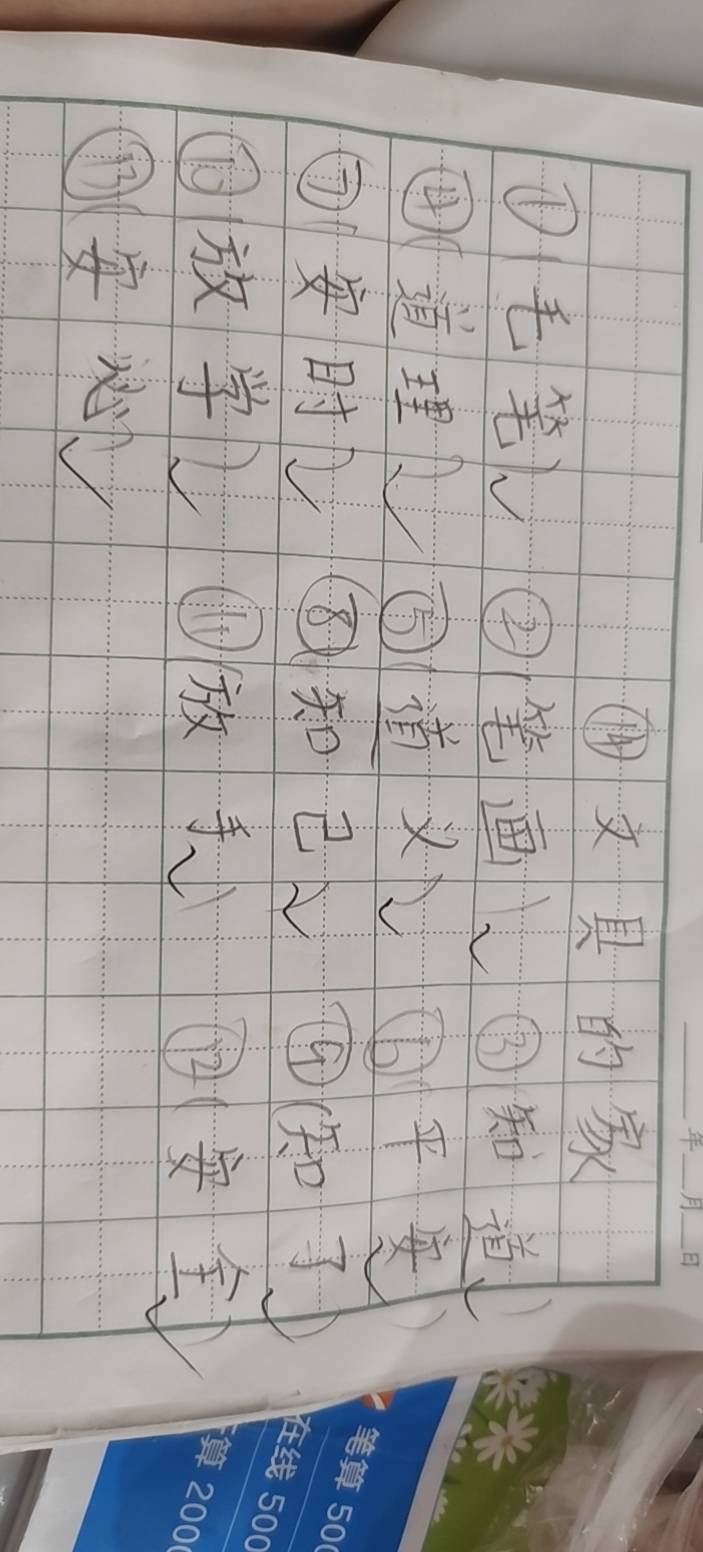 ____年__月__日
⑭文具的家
①(毛笔) ②(笔画) ③(知道)
④(道理) ⑤(道义) ⑥(平安)
⑦(安时) ⑧(知己) ⑨(知了)
⑩(放学) ⑪(放手) ⑫(安全)
⑬(安)
笔算 500
在线 500
算 2000